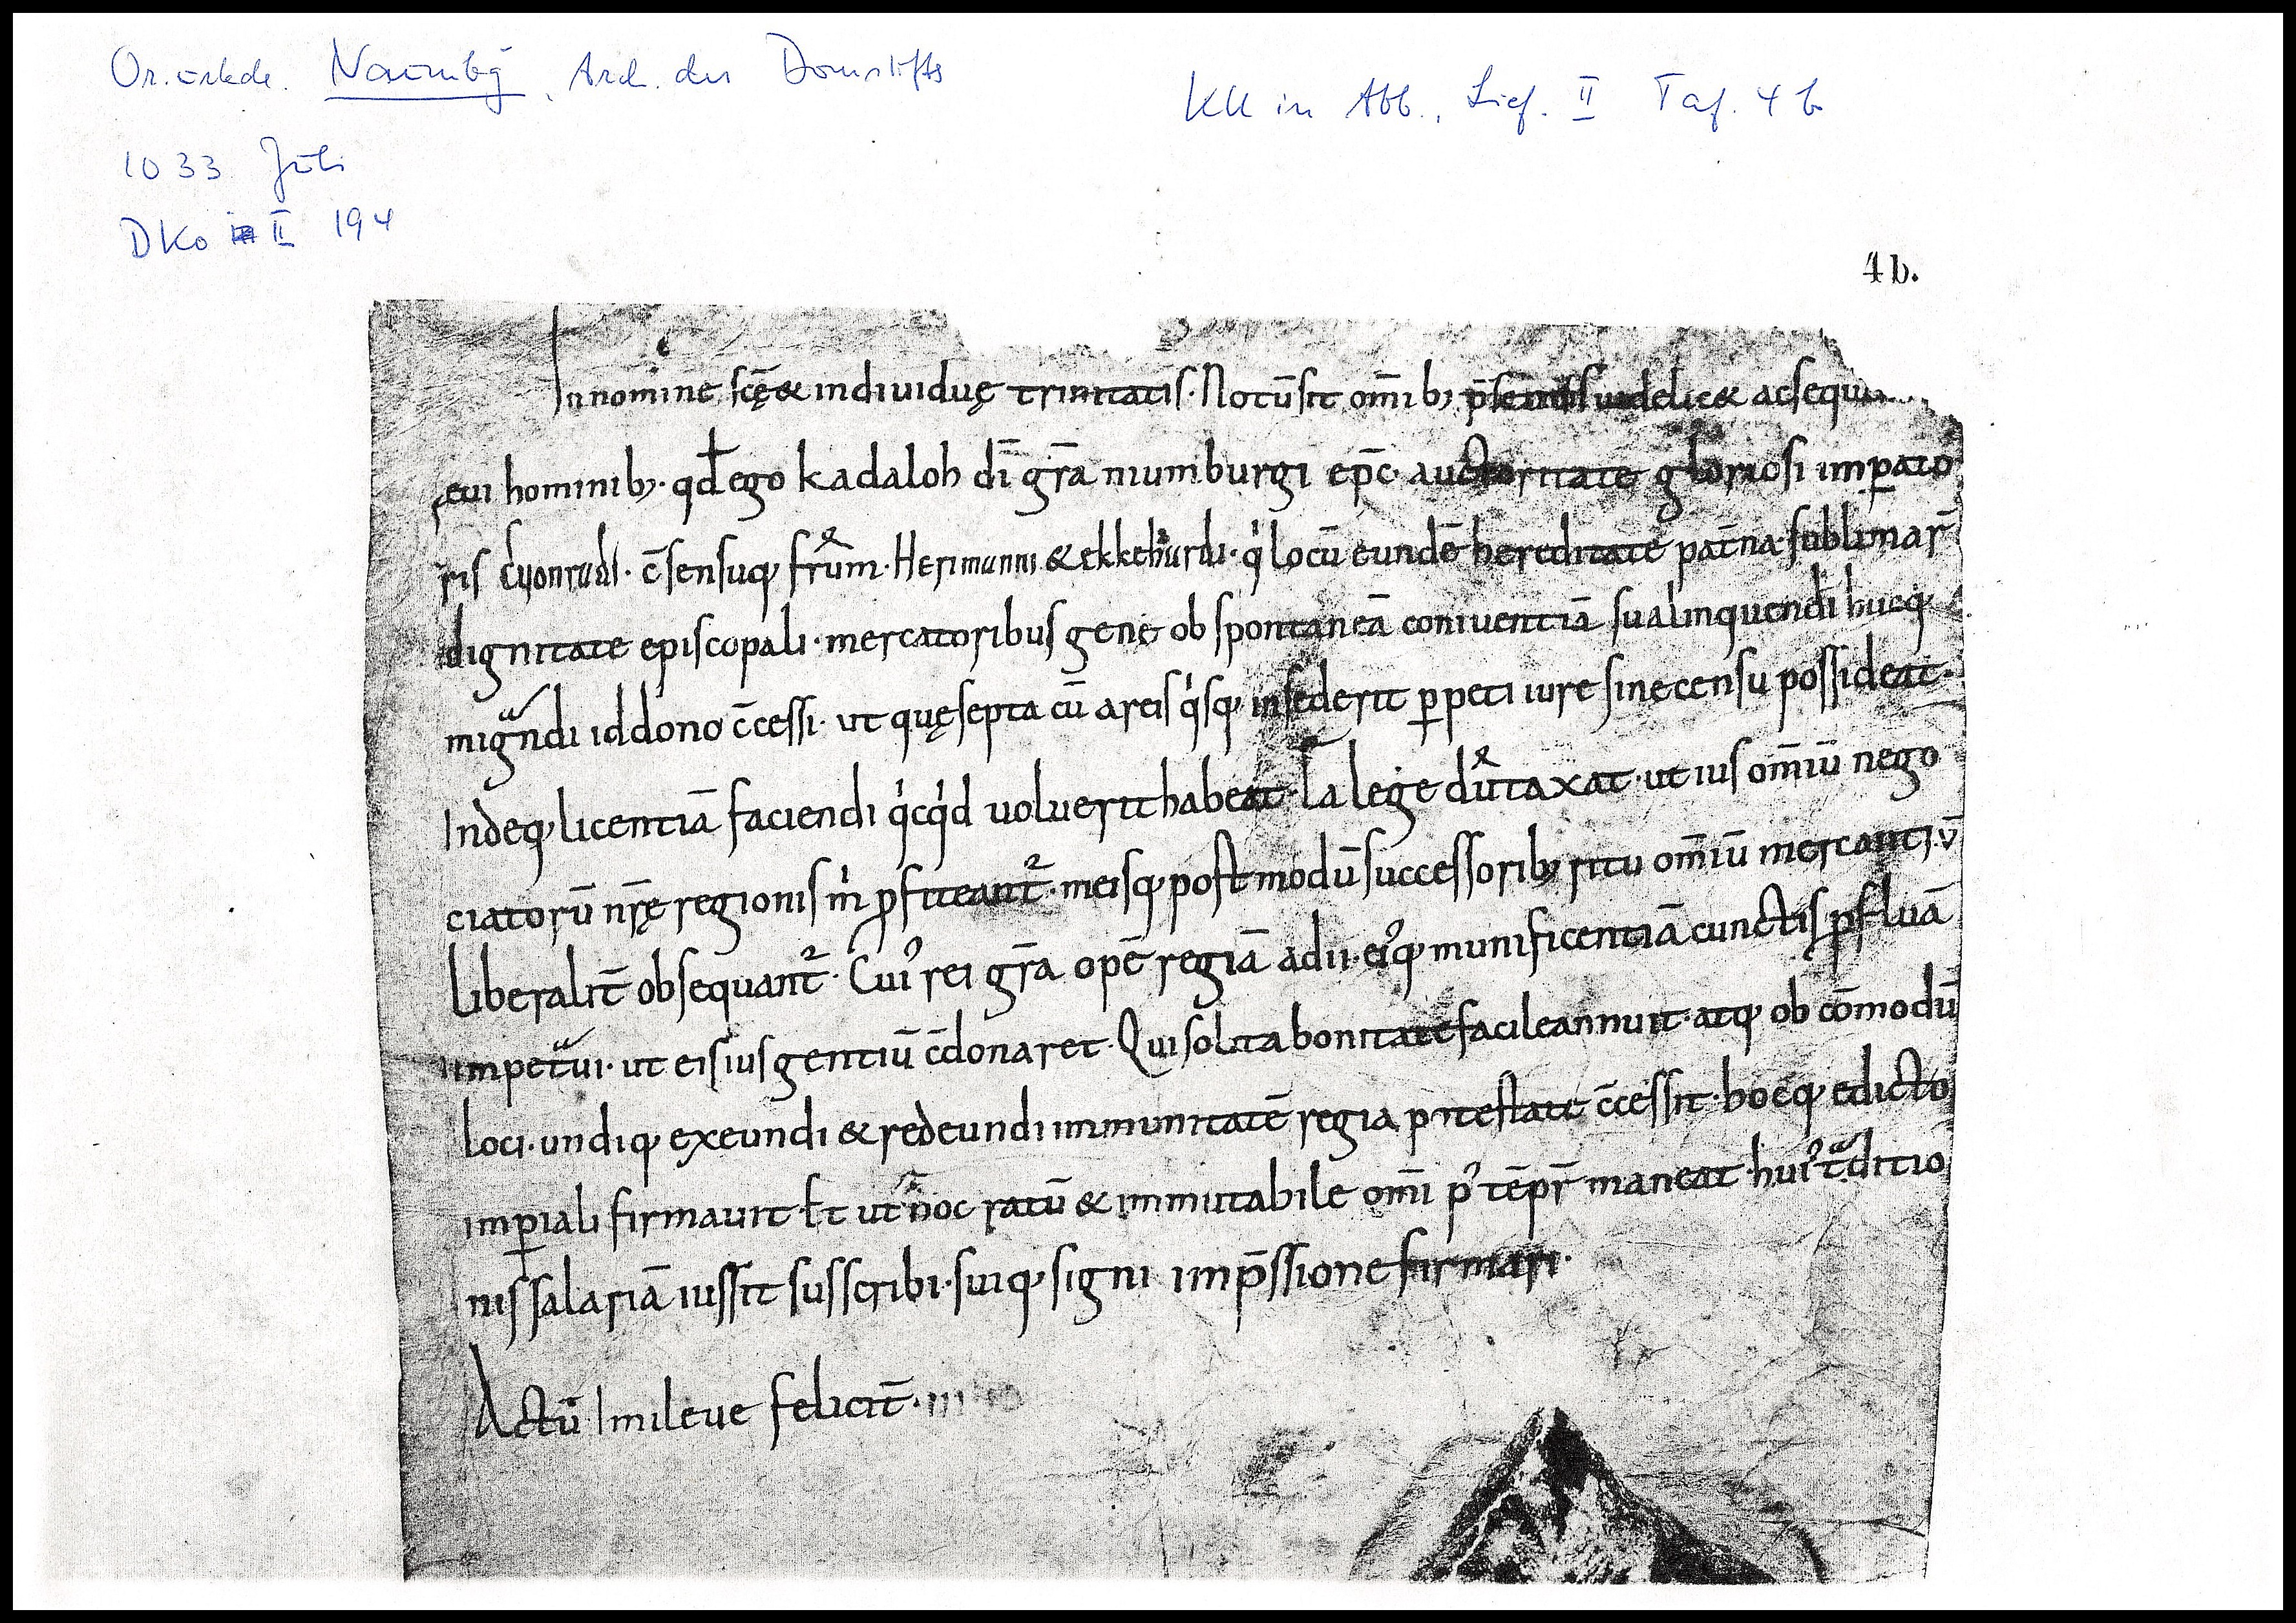 Or. urkde. Naumbg, Arch. des Domstifts
KU in Abb., Lief. II Taf. 4 b
1033 Juli
DKo II 194
4 b.
In nomine sc̄ę & indiuiduę trinitatis. Notū sit om̄ib; p̄sentib; uidelic& ac sequu
ęui hominib; qđ ego kadaloh dī gr̄a niumburgi ep̄c auctoritate gloriosi imꝑato
ris Cuonradi. c̄sensuq; fr̄um. Herimanni & ekkehardi. qͥ locū eundē hereditate pat̄na sublimar̄
dignitate episcopali. mercatoribus gene ob spontaneā coniuentiā sua linquendi hucq;
migͣndi id dono c̄cessi. ut quę septa cū areis qͥsq; insederit ꝑpeti iure sine censu possideat.
Indeq; licentiā faciendi qͥcqͥd uoluerit habeat. ea lege dūtaxat. ut ius om̄iū nego
ciatorū nr̄ę regionis mͥ ꝓfiteant̄. meisq; postmodū successorib; ritu om̄iū mercantiū
liberalit̄ obsequant̄. Cuiꝰ rei gr̄a opē regiā adii. eiꝰq; munificentiā cunctis ꝓfluā
impetͣui. ut eis ius gentiū c̄donaret. Qui solita bonitate facile annuit. atq; ob cōmodū
loci. undiq; exeundi & redeundi immunitatē regia potestate c̄cessit. hocq; edicto
imꝑiali firmauit. Et ut hoc ratū & immutabile om̄i pꝰ tēpr̄ maneat. huiꝰ tͣditio
nis salariā iussit susscribi. suiq; signi imp̄ssione firmari.
Actū Imileue felicit̄.